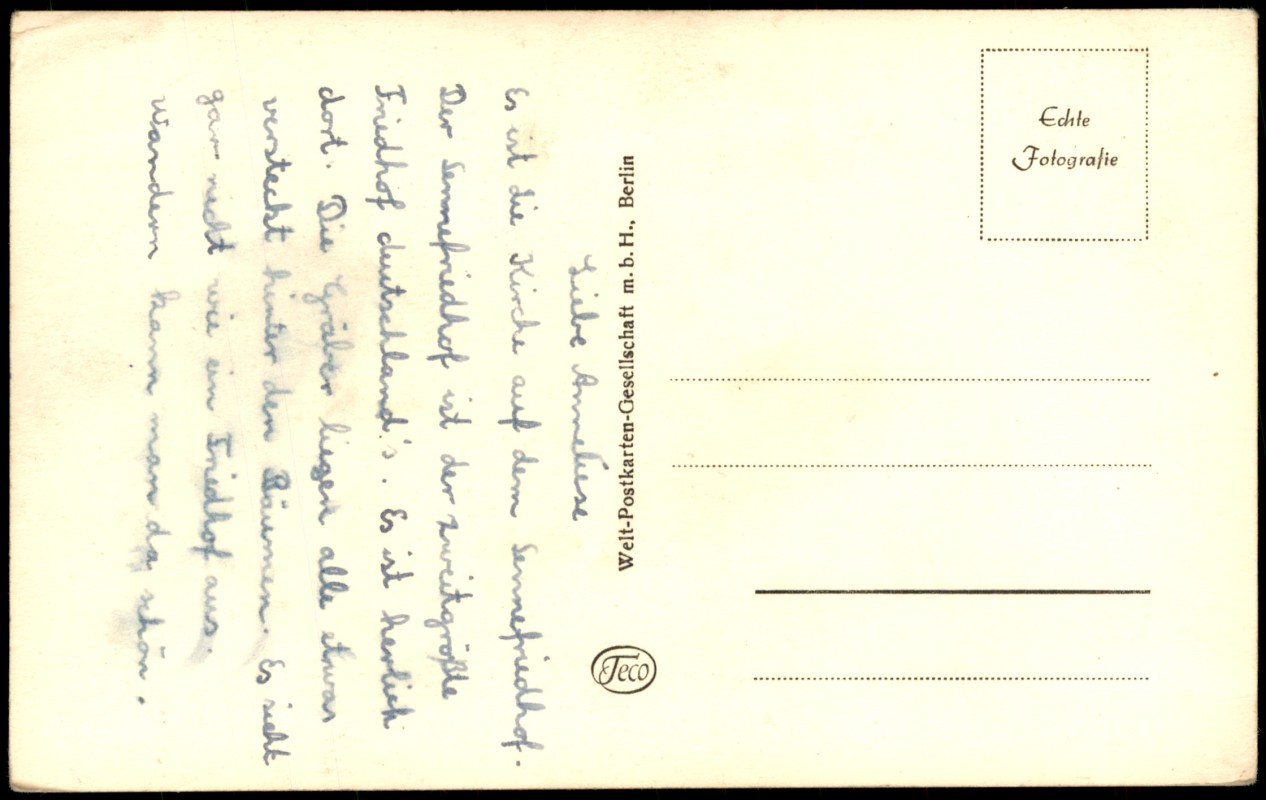 Liebe Anneliese
Es ist die Kirche auf dem Sennefriedhof.
Der Sennefriedhof ist der zweitgrößte
Friedhof deutschland's. Es ist herlich
dort. Die Gräber liegen alle etwas
versteckt hinter den Bäumen. Es sieht
gar nicht wie ein Friedhof aus.
wandern kann man da schön.
Welt-Postkarten-Gesellschaft m. b. H., Berlin
Teco
Echte
Fotografie